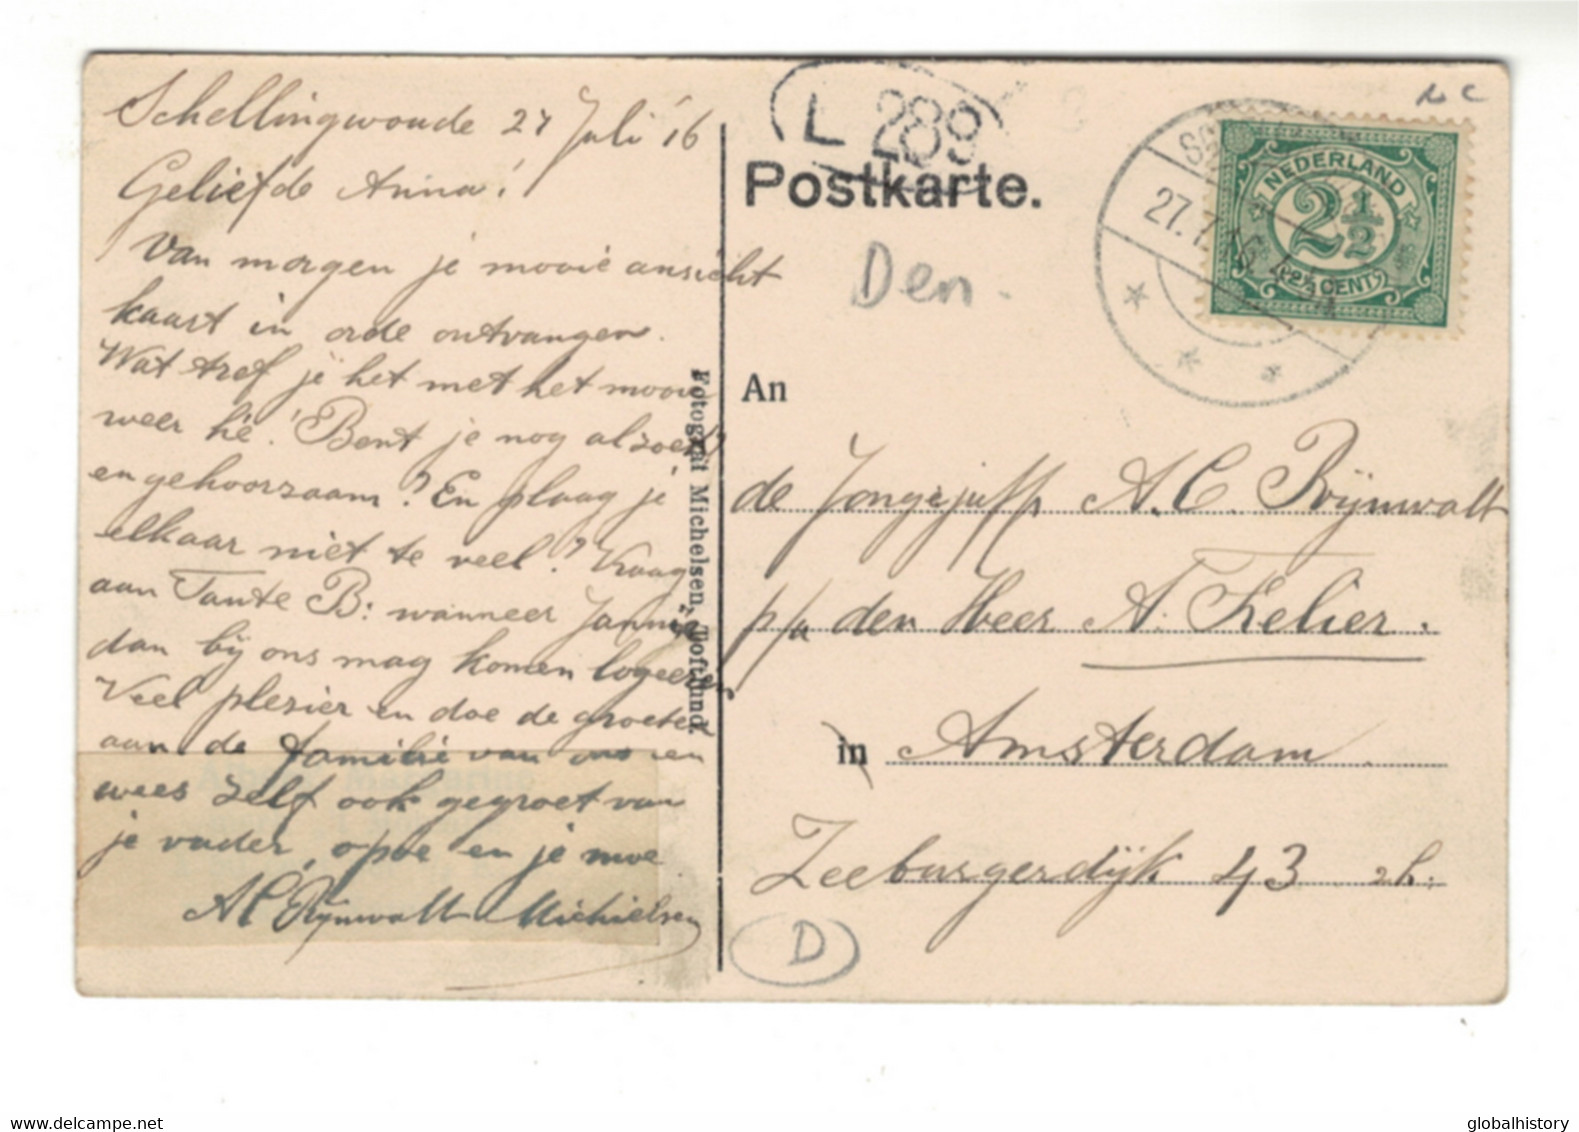 Schellingwoude 27 Juli '16
Geliefde Anna!
Van morgen je mooie ansicht
kaart in orde ontvangen.
Wat tref je het met het mooie
weer hè! Bent je nog al zoet
en gehoorzaam? En plaag je
elkaar niet te veel? Vraag
aan Tante B: wanneer Jannije
dan bij ons mag komen logeeren
Veel plesier en doe de groeten
aan de familie van ons en
wees zelf ook gegroet van
je vader, opoe en je moe
AC Rijnwalt Michielsen
Fotograf Michelsen, Toftlund.
L 289
Postkarte.
Den
NEDERLAND
2 1/2
(2½ CENT)
27.7.16. 4
An
de Jongejuffr. A.C. Rijnwalt
p/a den Heer A. Kelier.
in Amsterdam.
Zeeburgerdijk 43 2h.
D
delcampe.net
globalhistory